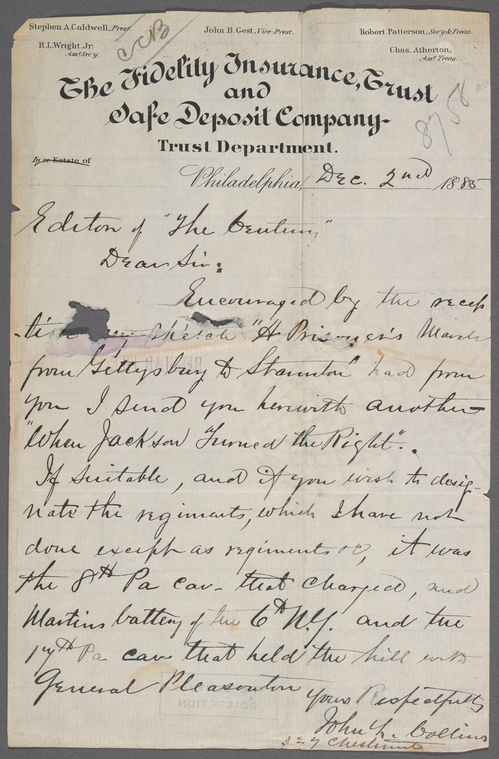 Stephen A. Caldwell, Prest.
John B. Gest, Vice-Prest.
Robert Patterson, Sec'y & Treas.
R. L. Wright, Jr.
Asst. Sec'y.
Chas. Atherton,
Asst. Treas.
CCB
The Fidelity Insurance, Trust
and
Safe Deposit Company-
8758
Trust Department.
In re Estate of
Philadelphia, Dec. 2nd 1885
Editor of "The Century"
Dear Sir:
Encouraged by the recep
-tion my sketch "A Prisoner's March
from Gettysburg to Staunton" had from
you I send you herewith another-
"When Jackson Turned the Right".
If suitable, and if you wish to desig-
nate the regiments, which I have not
done except as regiments &c, it was
the 8th Pa cav- that charged, and
Martins battery of the 6th N.Y. and the
17th Pa cav that held the hill with
General Pleasonton
Yours Respectfully
John L. Collins
327 Chestnut
COLLECTION